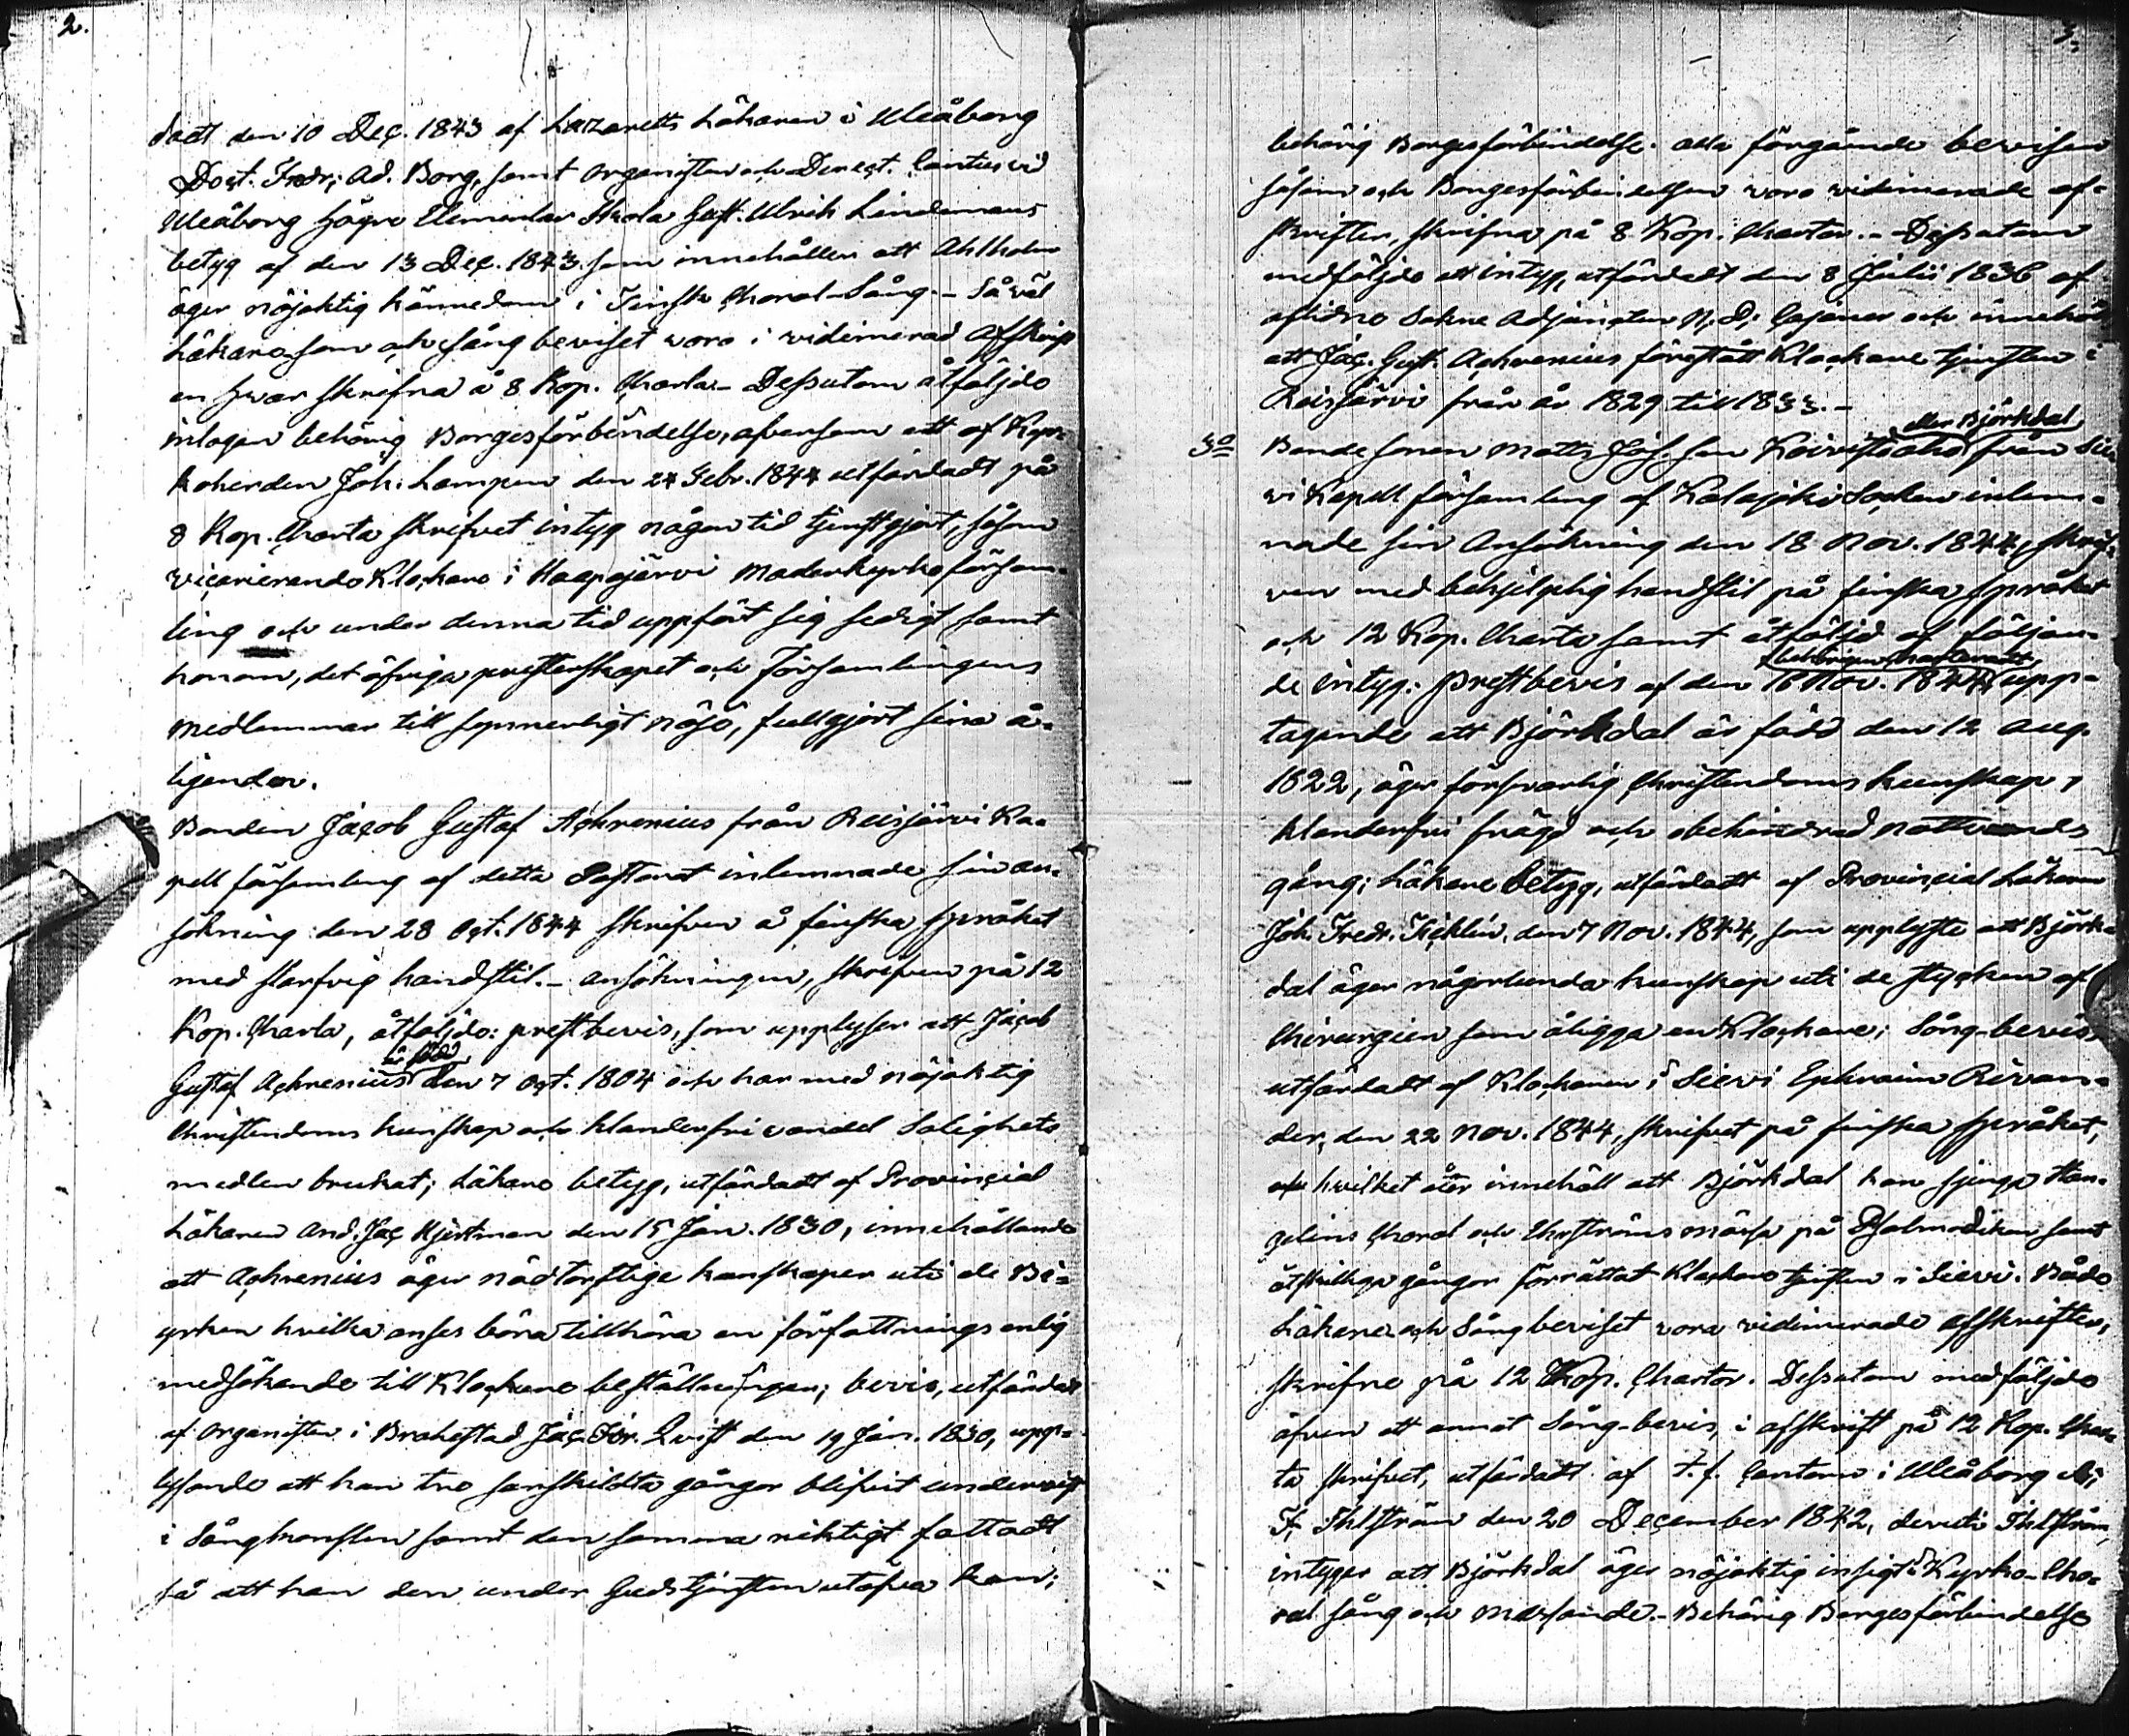 2.
dadt den 10 Dec. 1843 af Lazaretts Läkaren i Uleåborg
Doct. Fredr. Ad. Borg, samt Organisten och Direct. Cantus vid
Uleåborg högre Elementar Skola Gust. Ulrik Lindemans
betyg af den 13 Dec. 1843 som innehåller att Ahlholm
äger nöjaktig kännedom i Finsk Choral-Sång. - Så väl
Läkare som och sång beviset voro i vidimerad afskrift
en hvar skrifna å 8 Kop. Charta. - Dessutom åtföljde
inlagan behörig Borgesförbindelse, afvensom ett af Kyr-
koherden Joh. Lampen den 24 Febr. 1844 utfärdadt på
8 Kop. Charta skrifvet intyg någon tid tjenstgjort, såsom
vicarierande Klockare i Haapajärvi Moderkyrko försam-
ling och under denna tid uppfört sig sedigt samt
honom, det öfriga presterskapet och Församlingens
medlemmar till synnerligt nöje, fullgjort sina å-
ligenden.
Bonden Jacob Gustaf Achrenius från Reisjärvi Ka-
pell församling af detta Pastorat inlemnade sin an-
sökning den 28 Oct. 1844 skrifven å finska språket
med slarfvig handstil. - Ansökningen, skrifven på 12
Kop. Charta, åtföljde: prestbevis, som upplyser att Jacob
är född
Gustaf Achrenius den 7 Oct. 1804 och har med nöjaktig
Christendoms kunskap och klanderfri vandel Salighets
medlen brukat; Läkare betyg, utfärdadt af Provincial
Läkaren And. Jac. Hjertman den 15 Jan. 1830, innehållande
att Achrenius äger nödtorftige kunskaper uti de Bi-
yrken hvilka anses böra tillhöra en författnings enlig
medsökande till Klockare beställningen; bevis, utfärdat
af Organisten i Brahestad Jac. För. Qvist den 19 Jan. 1830, upp-
lysande att han tre särskildta gånger blifvit undervist
i Sångkonsten samt den samma riktigt fattadt
så att han den under Gudstjensten utöfva kan;
3.
behörig Borgesförbindelse. Alla förgående bevisen
såsom och Borgesförbindelsen voro vidimerade af-
skrifter, skrifna på 8 Kop. Chartor. - Dessutom
medföljde ett intyg, utfärdadt den 8 Julii 1836 af
aflidne Sokne Adjuncten N. D. Cajaner och innehöll
att Jac. Gust. Achrenius förestått Klockare tjensten i
Reisjärvi från år 1829 till 1833. -
eller Björkdal
3o Bonde sonen Matts Jos. son Koivistoaho från Sie
vi Kapell församling af Kalajoki Socken inlem-
nade sin Ansökning den 18 Nov. 1844, skrif-
ven med behjelpelig handstil på finska språket
och 12 Kop. Charta samt åtföljd af följan-
de intyg: prestbevis af den 16 Nov. 1844 upp-
tagande att Björkdal är född den 12 Aug.
1822, äger försvarlig Christendoms kunskap,
klanderfri frägd och obehindrad nattvards
gång; Läkare betyg, utfärdadt af Provincial Läkaren
Joh. Fredr. Ticklén, den 7 Nov. 1844, som upplyste att Björk-
dal äger någorlunda kunskap uti de stycken af
Chirurgien som åligga en Klockare; Sång-bevis
utfärdadt af Klockaren i Sievi Ephraim Rivan-
der, den 22 Nov. 1844, skrifvet på finska språket,
hvilket åter innehåll att Björkdal kan sjunga Han-
gelins Choral och Ehrströms mässa på Psalmodikon samt
åtskilliga gånger förrättat Klockare tjensten i Sievi. Både
Läkare och Sång beviset vora vidimerade afskrifter,
skrifne på 12 Kop. Chartor. Dessutom medföljde
äfven ett annat Sång-bevis, i afskrift på 12 Kop. Char-
ta skrifvet, utfärdadt af t. f. Cantorn i Uleåborg
F. Ihlström den 20 December 1842, deruti Ihlström
intyger att Björkdal äger nöjaktig insigt i Kyrko-Cho-
ral sång och messande. - Behörig Borgesförbindelse